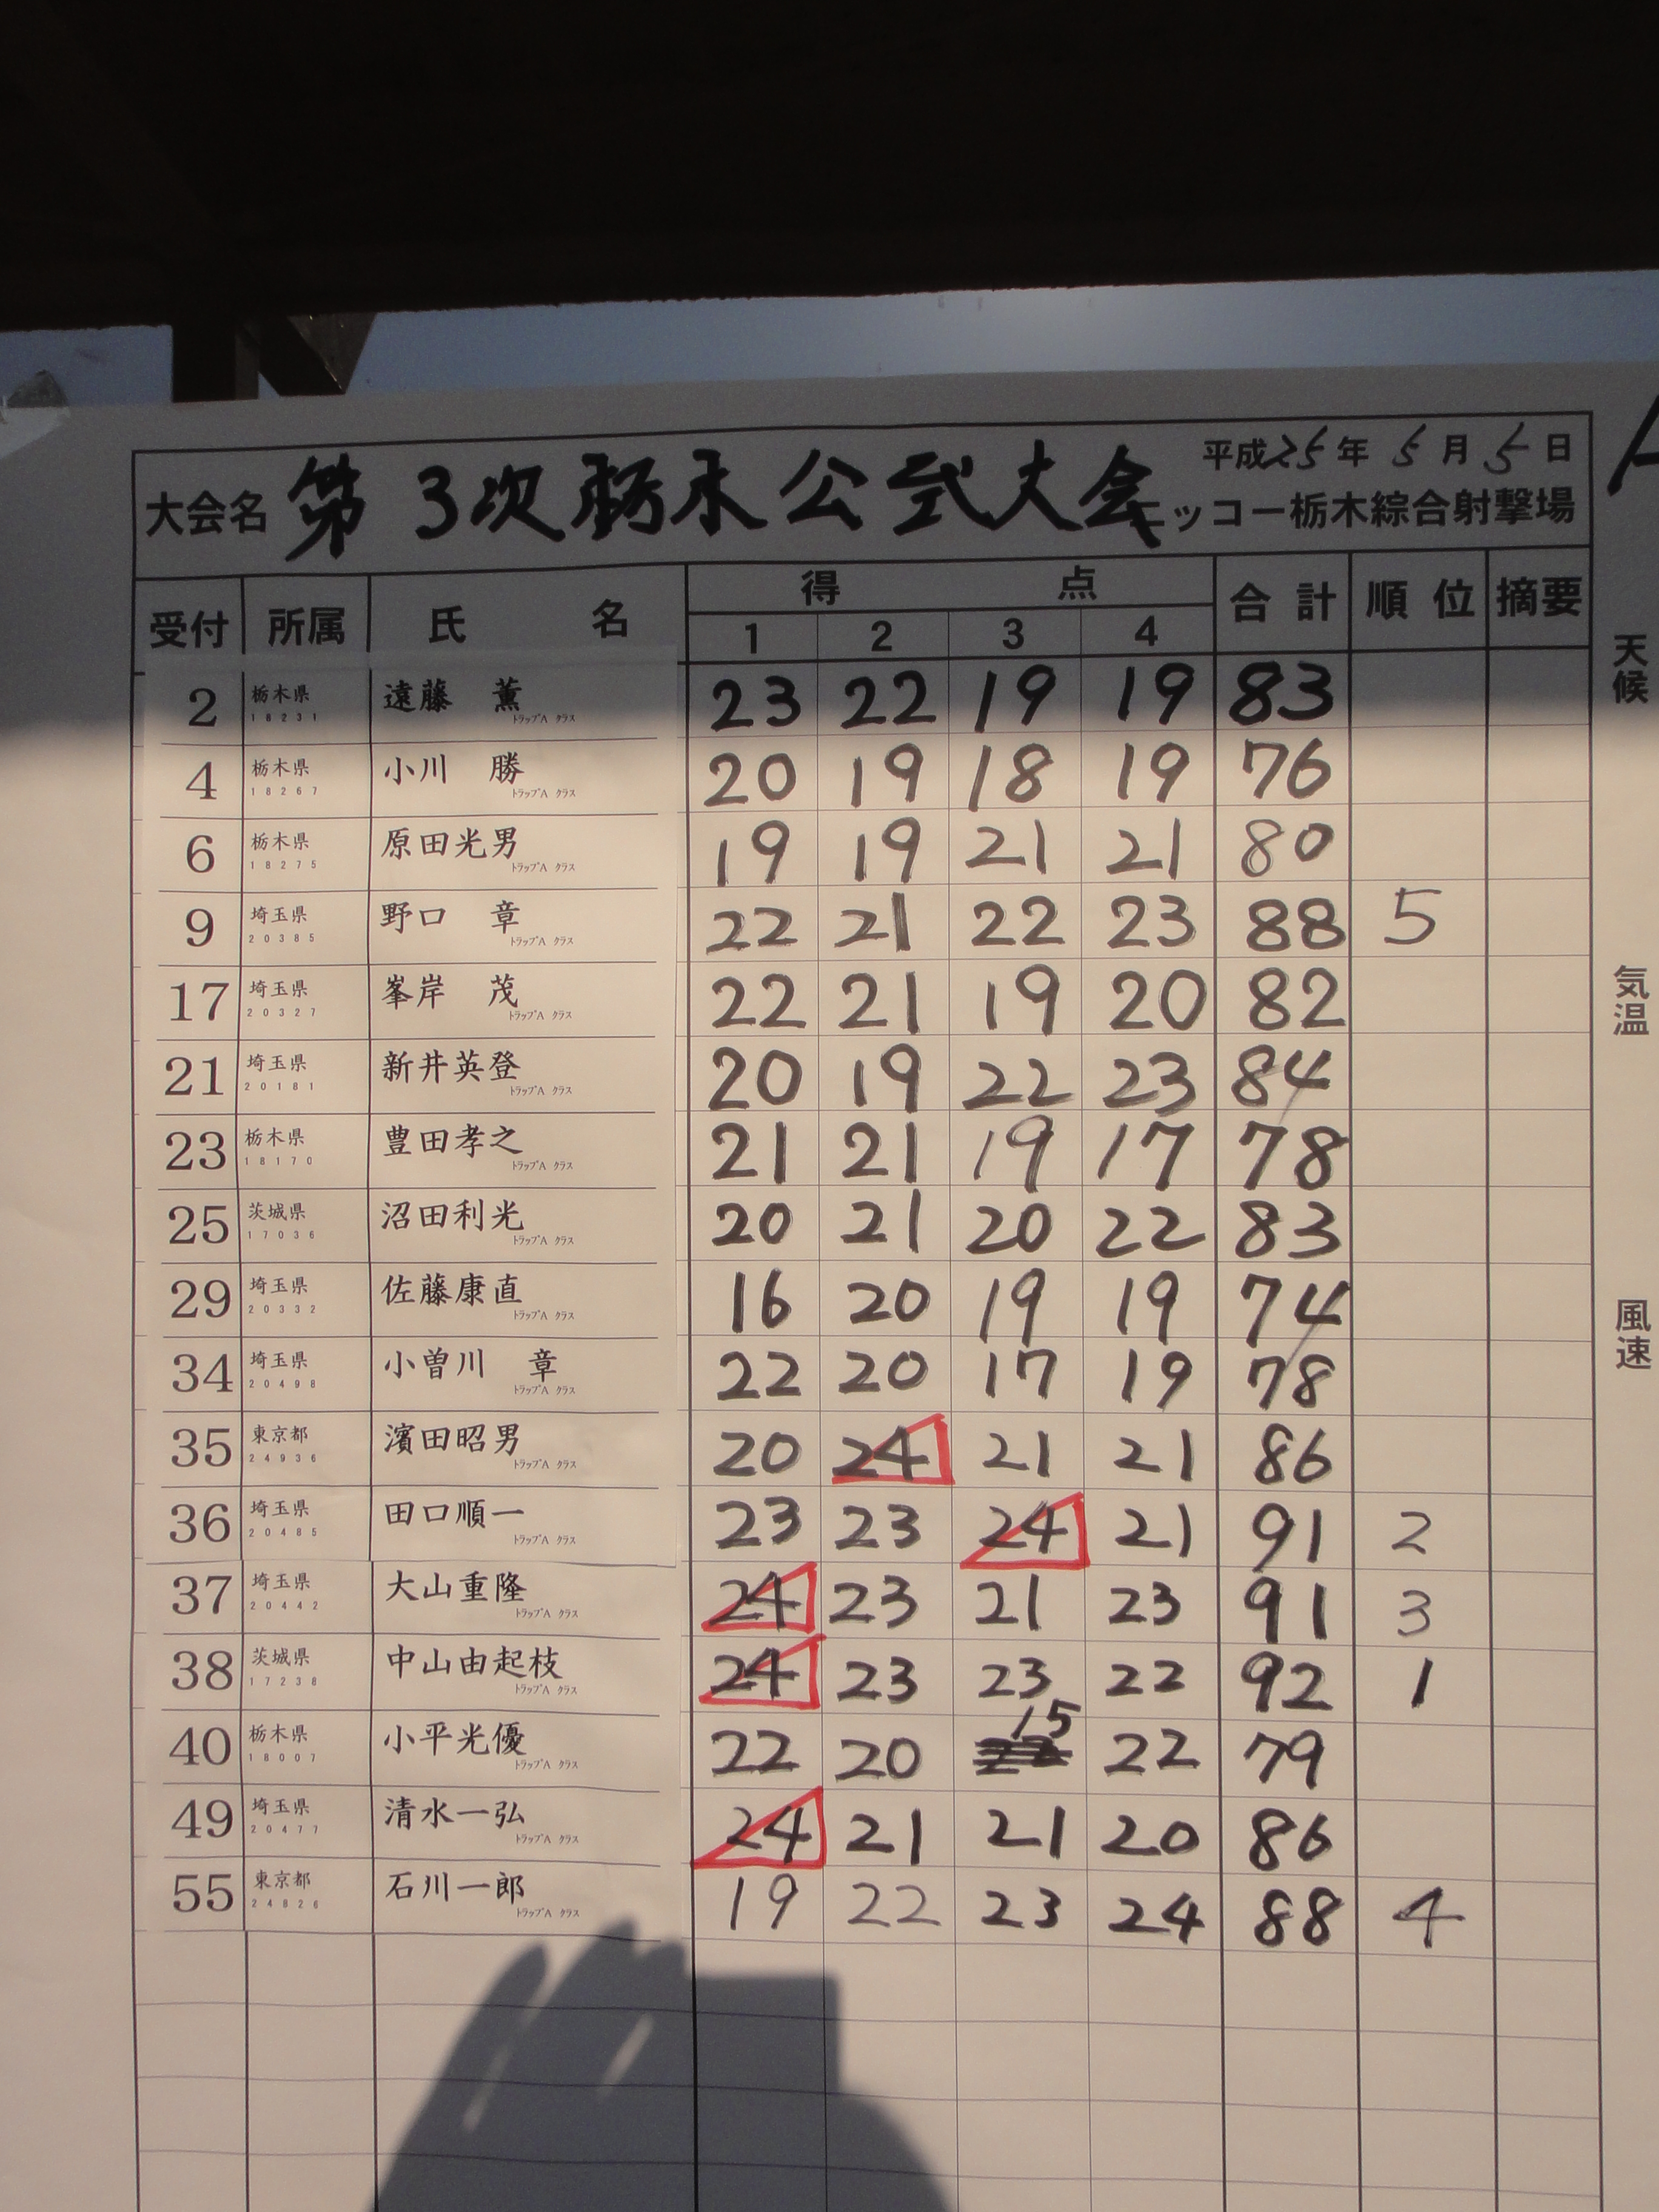 平成25年 5月 5日
大会名 第3次栃木公式大会 ニッコー栃木綜合射撃場
受付 所属 氏名 得点 合計 順位 摘要
1 2 3 4
2 栃木県 18231 遠藤 薫 トラップA クラス 23 22 19 19 83
4 栃木県 18267 小川 勝 トラップA クラス 20 19 18 19 76
6 栃木県 18275 原田光男 トラップA クラス 19 19 21 21 80
9 埼玉県 20385 野口 章 トラップA クラス 22 21 22 23 88 5
17 埼玉県 20327 峯岸 茂 トラップA クラス 22 21 19 20 82
21 埼玉県 20181 新井英登 トラップA クラス 20 19 22 23 84
23 栃木県 18170 豊田孝之 トラップA クラス 21 21 19 17 78
25 茨城県 17036 沼田利光 トラップA クラス 20 21 20 22 83
29 埼玉県 20332 佐藤康直 トラップA クラス 16 20 19 19 74
34 埼玉県 20498 小曽川 章 トラップA クラス 22 20 17 19 78
35 東京都 24936 濱田昭男 トラップA クラス 20 24 21 21 86
36 埼玉県 20485 田口順一 トラップA クラス 23 23 24 21 91 2
37 埼玉県 20442 大山重隆 トラップA クラス 24 23 21 23 91 3
38 茨城県 17238 中山由起枝 トラップA クラス 24 23 23 22 92 1
40 栃木県 18007 小平光優 トラップA クラス 22 20 15 22 79
49 埼玉県 20477 清水一弘 トラップA クラス 24 21 21 20 86
55 東京都 24826 石川一郎 トラップA クラス 19 22 23 24 88 4
天候
気温
風速